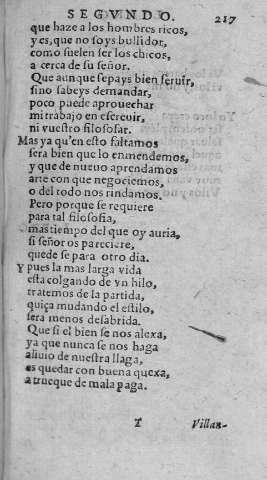 SEGVNDO. 217
que haze a los hombres ricos,
y es, que no soys bullidor,
como suelen ser los chicos,
a cerca de su señor.
Que aunque sepays bien seruir,
sino sabeys demandar,
poco puede aprouechar
mi trabajo en escreuir,
ni vuestro filosofar.
Mas ya qu'en esto faltamos
sera bien que lo enmendemos,
y que de nueuo aprendamos
arte con que negociemos,
o del todo nos rindamos.
Pero porque se requiere
para tal filosofia,
mas tiempo del que oy auria,
si señor os pareciere,
quede se para otro dia.
Y pues la mas larga vida
esta colgando de vn hilo,
tratemos de la partida,
quiça mudando el estilo,
sera menos desabrida.
Que si el bien se nos alexa,
ya que nunca se nos haga
aliuio de nuestra llaga,
es quedar con buena quexa,
a trueque de mala paga.
T Villan-